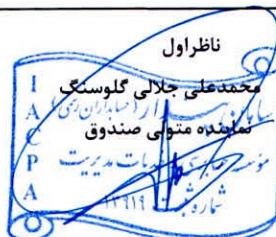 ناظراول
محمدعلی جلالی گلوسنگ
نماینده متولی صندوق
IACPA
(حسابداران رسمی)
مدیریت
شماره ثبت ۱۲۹۱۹